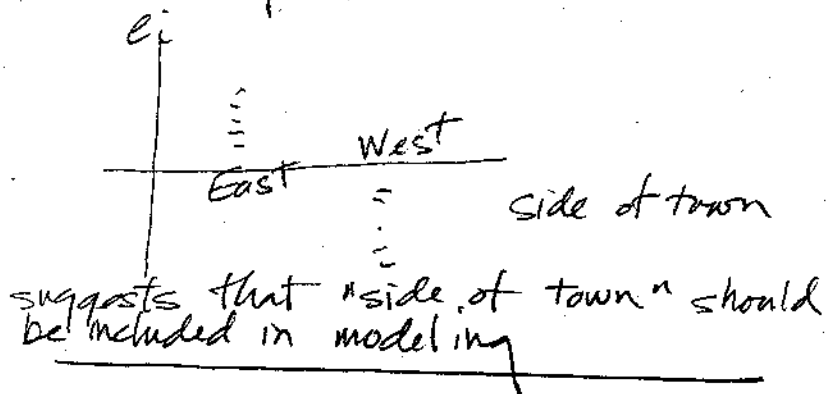 ei
West
East
side of town
suggests that "side of town" should
be included in modeling